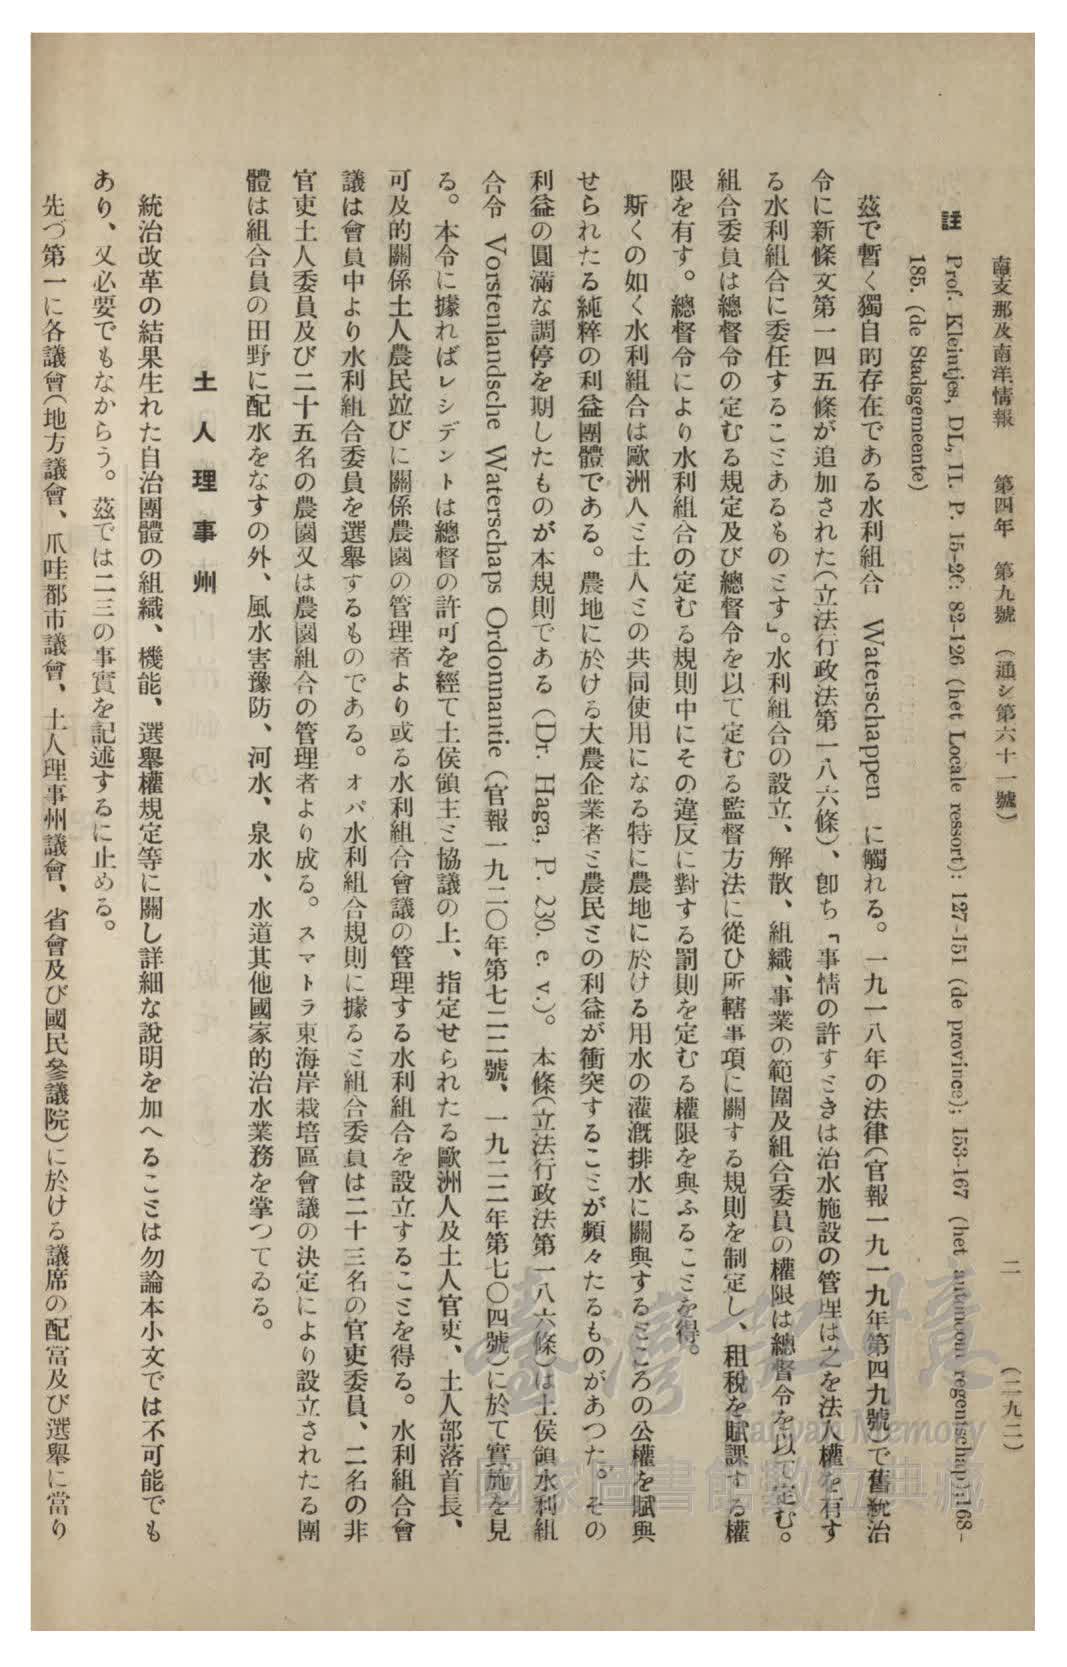 南支那及南洋情報　第四年　第九號　(通シ第六十一號)　二　(二九二)
註　Prof. Kleintjes, DL, II. P. 15-26: 82-126 (het Locale ressort): 127-151 (de province); 153-167 (het autonoom regentschap);168-
185. (de Stadsgemeente)
茲で暫く獨自的存在である水利組合　Waterschappen　に觸れる。一九一八年の法律(官報一九一九年第四九號)で舊統治
令に新條文第一四五條が追加された(立法行政法第一八六條)、卽ち「事情の許すときは治水施設の管理は之を法人權を有す
る水利組合に委任することあるものとす」。水利組合の設立、解散、組織、事業の範圍及組合委員の權限は總督令を以て定む。
組合委員は總督令の定むる規定及び總督令を以て定むる監督方法に從ひ所轄事項に關する規則を制定し、租稅を賦課する權
限を有す。總督令により水利組合の定むる規則中にその違反に對する罰則を定むる權限を與ふることを得。
斯くの如く水利組合は歐洲人と土人との共同使用になる特に農地に於ける用水の灌漑排水に關與するところの公權を賦與
せられたる純粹の利益團體である。農地に於ける大農企業者と農民との利益が衝突することが頻々たるものがあつた。その
利益の圓滿な調停を期したものが本規則である (Dr. Haga, P. 230. e. v.)。本條(立法行政法第一八六條)は土侯領水利組
合令 Vorstenlandsche Waterschaps Ordonnantie (官報一九二〇年第七二二號、一九二二年第七〇四號)に於て實施を見
る。本令に據ればレシデントは總督の許可を經て土侯領主と協議の上、指定せられたる歐洲人及土人官吏、土人部落首長、
可及的關係土人農民竝びに關係農園の管理者より或る水利組合會議の管理する水利組合を設立することを得る。水利組合會
議は會員中より水利組合委員を選擧するものである。オパ水利組合規則に據ると組合委員は二十三名の官吏委員、二名の非
官吏土人委員及び二十五名の農園又は農園組合の管理者より成る。スマトラ東海岸栽培區會議の決定により設立されたる團
體は組合員の田野に配水をなすの外、風水害豫防、河水、泉水、水道其他國家的治水業務を掌つてゐる。
土人理事州
統治改革の結果生れた自治團體の組織、機能、選擧權規定等に關し詳細な說明を加へることは勿論本小文では不可能でも
あり、又必要でもなからう。茲では二三の事實を記述するに止める。
先づ第一に各議會(地方議會、爪哇都市議會、土人理事州議會、省會及び國民參議院)に於ける議席の配當及び選擧に當り
臺灣記憶
Taiwan Memory
國家圖書館數位典藏